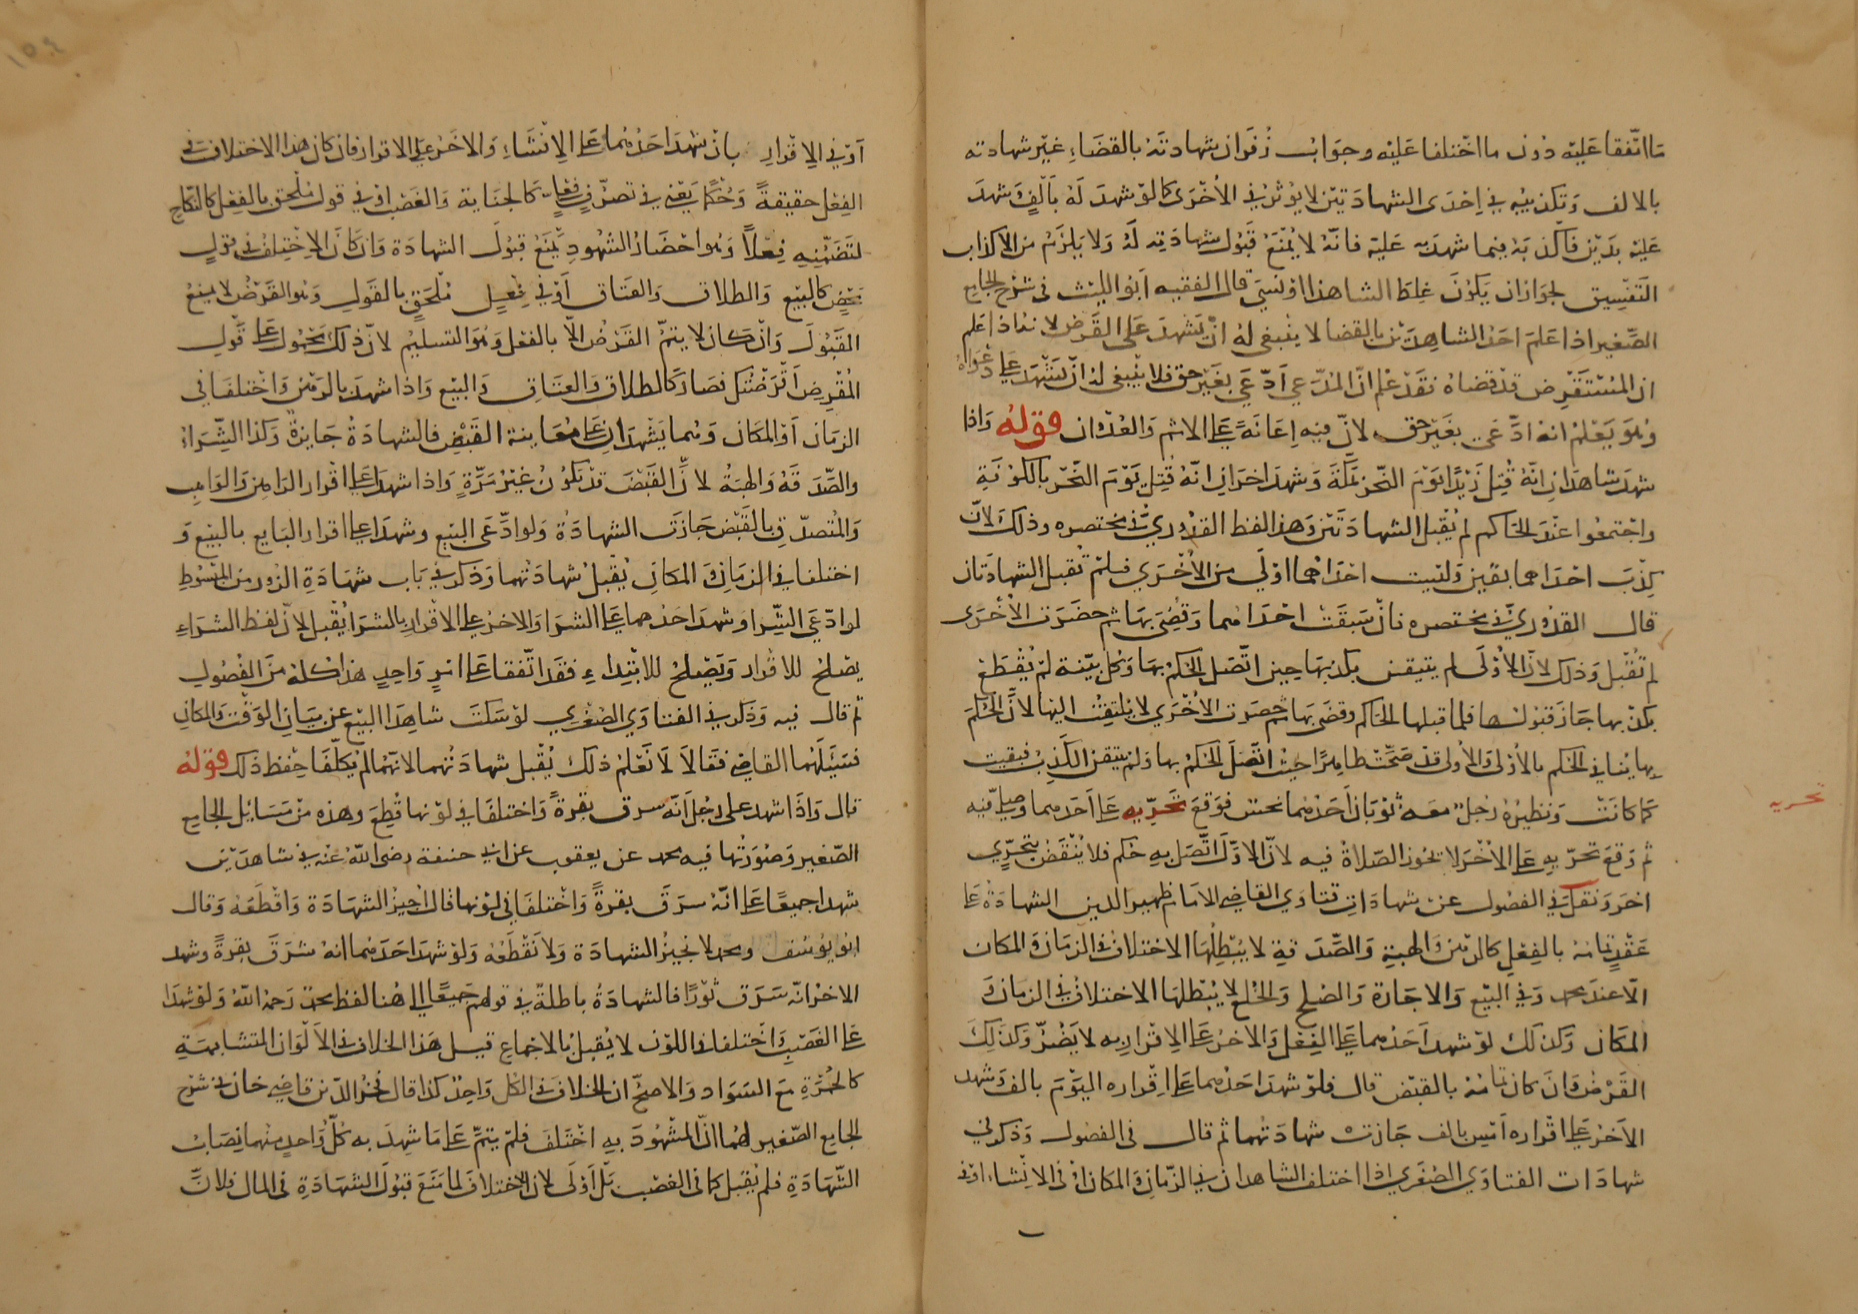 مَا اتّفقا عَليْه دُون ما اخْتلفا عَليْه وجوَابُ زُفَر ان شهادتهُ بالقضَاءِ غيْر شهادته
بالالف وَتكذيبه في اِحْدَى الشهادَتيْن لا يُوثرُ في الأخْرَى كما لوْ شهدَ لهُ بألفٍ وَشهدَ
عَليْه بدَيْن فأكذبَهُ فيما شهدَ به عَليْه فانّهُ لا يُمْنَعُ قَبُول شهادَتِه لهُ وَلا يَلزَمُ من الاكذاب
التفسِيق لجوَاز ان يَكوْنَ غلِط الشاهدُ اوْ نَسِيَ قال الفقيه أبوُ الليْث في شرْح الجامِع
الصّغير اذا عَلمَ احَدُ الشاهِدَيْن بالقضا لا ينْبغى لهُ انْ يَشهَدَ عَلى القرْض لانهُ اذا عَلم
ان المُسْتقرِض قدْ قضاهُ فقدْ علم انّ المدّعي ادّعَى بغَيْر حق فلا ينْبغي لهُ انْ يَشْهَد عَلى دَعْوَاهُ
وَهُوَ يَعْلمُ انه ادّعَى بغَيْر حق لانّ فيه اِعَانَةً عَلى الاثم وَالعُدْوان قولهُ وَاذا
شهدَ شاهدَانِ انّهُ قُتِلَ زيْدًا يَوْمَ النّحْر بمَكةَ وَشهدَ اخَرَانِ انّهُ قُتِل يَوْمَ النّحْر بالكوْفَةِ
واجْتمعُوا عنْدَ الحَاكم لم يُقْبل الشهادَتيْن وَهذا لفظ القدُوريّ في مختصره وذلكَ لانّ
كِذْبَ احْدَاهما بيَقين وَليْست احْدَاهمَا اوْلَى من الأخْرَى فلمْ تُقبل الشهادَتان
قال القدُوريّ في مختصره فانْ سَبَقَتْ احْدَاهُما وَقُضِيَ بهَا ثم حضَرَت الأخْرَى
لم تُقْبل وَذلك لانّ الأوْلى لم يتيقن بكذبهَا حِين اتّصَل الحكم بهَا وَكلّ بيّنة لمْ يُقْطَعْ
بكذبها جَازَ قبُولها فلما قبلها الحَاكم وقضَى بهَا ثم حضرَت الأخْرَى لا يُلتفِتُ اليْها لانّ الحُكمَ
بهَا يُنافي الحكم بالأوْلى وَالأولى قدْ صَحّتْ ظاهِرًا حيْثُ اتّصَلَ الحكمُ بهَا وَلم يتيقن الكذِبُ فبقيت
كما كانتْ وَنظيرُهُ رَجُلٌ معَه ثوْبَان أحَدُهُما نجسٌ فوَقعَ تحرّيه عَلى أحَدهما وصَلّى فيه
ثم وَقعَ تحرّيهِ عَلى الأخَر لا تجُوز الصّلاةُ فيه لانّ الاوّلَ اتّصَلَ بهِ حُكم فلا يُنْقَضُ بتَحرِّي
اخرَ وَنقلَ في الفصُول عن شهادَاتِ فتاوَي القاضِي الامَام ظهير الدين الشهادَةُ عَلى
عَقْدٍ تمَامُهُ بالفِعْلِ كالرّهن وَالهِبَةِ وَالصّدَقةِ لا يُبْطِلُهَا الاختلافُ في الزمَان وَالمكان
الّا عنْد محمد وَفي البَيْع وَالاجَارة وَالصُلح وَالخُلع لا يُبْطلهَا الاختلافُ في الزمان وَ
المكَان وَكذلك لوْ شهد أحَدُهما عَلى الفعْلِ وَالاخرُ عَلى الاِقْرار به لا يَضُرّ وَكذلِكَ
القرْض وَان كانَ تمَامُهُ بالقبْض قال فلوْ شهدَ احَدُهما عَلى اِقْراره اليَوْمَ بالف وَشهد
الأخرُ عَلى اقْراره أمْسِ بالف جَازتْ شهادَتهُما ثم قال في الفصُول وَذكرَ في
شهادَات الفتاوَي الصُغرى اذا اختلف الشاهدان في الزّمَانِ وَالمكان اوْ في الانشاء اوْ في
تحريه
أوْ في الِاقْرارِ بانْ شهدَ احَدُهُما عَلى الِانْشاءِ وَالاخَرُ عَلى الاقرار فان كان هذا الاختلاف في
الفِعْل حقيقةً وَحُكمًا يَعْني في تصرّفٍ فِعْليٍّ كالجنَاية وَالغَصْب اوْ في قولٍ مُلحقٍ بالفِعْل كالنّكاح
لتَضَمُّنِهِ فِعْلًا وَهُوَ احْضَارُ الشُهُودِ يَمْنَعُ قَبُولَ الشهادَة وَان كانَ الاِخْتِلَافُ في قوْلٍ
مَحْضٍ كالبَيْع وَالطلاق وَالعتَاق أوْ في فِعْلٍ مُلحَقٍ بالقَولِ وَهُو القَرْضُ لا يمنعُ
القَبُولَ وَانْ كان لا يَتمُّ القَرْضُ الّا بالفعْل وَهُوَ التسليمُ لانّ ذلكَ محْمُول عَلى قَوْلِ
المُقْرِض أقْرَضْتُكَ فصَارَ كالطلاق وَالعتَاق وَالبَيْع وَاذا شهدَا بالرَهْن وَاخْتلفَا في
الزمَان أوْ المكَان وَهُما يَشْهَدَان عَلى مُعَاينة القَبْض فالشهادَةُ جَايزةٌ وَكذا الشِّرَاءُ
والصّدَقَةُ وَالهبَةُ لانّ القَبْضَ قدْ يَكوُنُ غيْرَ مَرّةٍ وَاذا شهدَا عَلى اقْرار الرَاهِن وَالوَاهِب
وَالمُتصدّق بالقَبْض جَازَت الشهادَةُ وَلو ادّعَى البَيْع وشهدَا عَلى اقرار البَايع بالبَيْع وَ
اختلفا في الزمَان وَالمكَانِ يُقْبلُ شهادَتهُما وَذكرَ في بَاب شهَادَةِ الزُور من المبْسُوطِ
لو ادّعَى الشِّرا وَشهدَ احَدُهما عَلى الشرَا وَالاخرُ عَلى الاقْرار بالشرَا يُقْبلُ لانّ لفظ الشرَاءِ
يصْلحُ للاقْرار وَيَصْلحُ للابتدَاءِ فقَد اتّفقا عَلى امْرٍ وَاحِدٍ هذا كلهُ مِنَ الفُصُولِ
ثم قال فيه وَذكرَ في الفتاوَي الصُغْرى لوْ سَكتَ شاهِدَا البَيْع عَنْ بيَانِ الوَقْت وَالمكَانِ
فسَئَلهُما القاضِي فقَالا لا نَعْلمُ ذلك يُقْبل شهادَتهُما لانّهُما لم يُكَلّفَا حِفْظ ذلكَ قوْلهُ
قال وَاذا شهدَ على رجُل أنّهُ سرق بقرةً وَاختلفَا في لوْنها قُطِعَ وهذه منْ مَسَائل الجامِع
الصّغير وَصُورَتُها فيه محمد عن يعقوب عن ابي حنيفة رضى اللّهُ عَنْه في شاهدَيْن
شهدا جميعًا عَلى انّهُ سرَقَ بقرةً وَاخْتلفَا في لوْنها قال أُجيزُ الشهادَة وَاقْطَعُه وَقال
ابو يُوسُف ومحمد لا نجيزُ الشهادَة وَلا نَقْطَعُه وَلوْ شهدَ احَدُهُما انهُ سَرَقَ بقرةً وشهد
الاخرُ انّهُ سَرَق ثوْرًا فالشهادَةُ باطلةٌ في قولهم جميعًا الى هُنا لفظ محمد رَحمَهُ اللّهُ وَلوْ شهدَا
عَلى الغصْبِ وَاختلفا في اللون لا يُقبلُ بالاجماع قيل هَذا الخلاف في الألوَان المتشابهَةِ
كالحُمْرَةِ مَعَ السّوَاد وَالاصحّ ان الخلاف في الكل وَاحدٌ كذا قال فخرُ الدّين قاضِي خان في شرْح
الجامع الصّغير لهُما انّ المشْهُودَ بِهِ اخْتَلفَ فلمْ يتمّ عَلى مَا شهِدَ به كلّ وَاحدٍ منْهما نِصَابُ
الشّهَادَةِ فلم يُقبَل كما في الغصْب بَلْ اَوْلَى لانّ الاختلافَ لما مَنَعَ قبُولَ الشهادَةِ في المال فلانْ